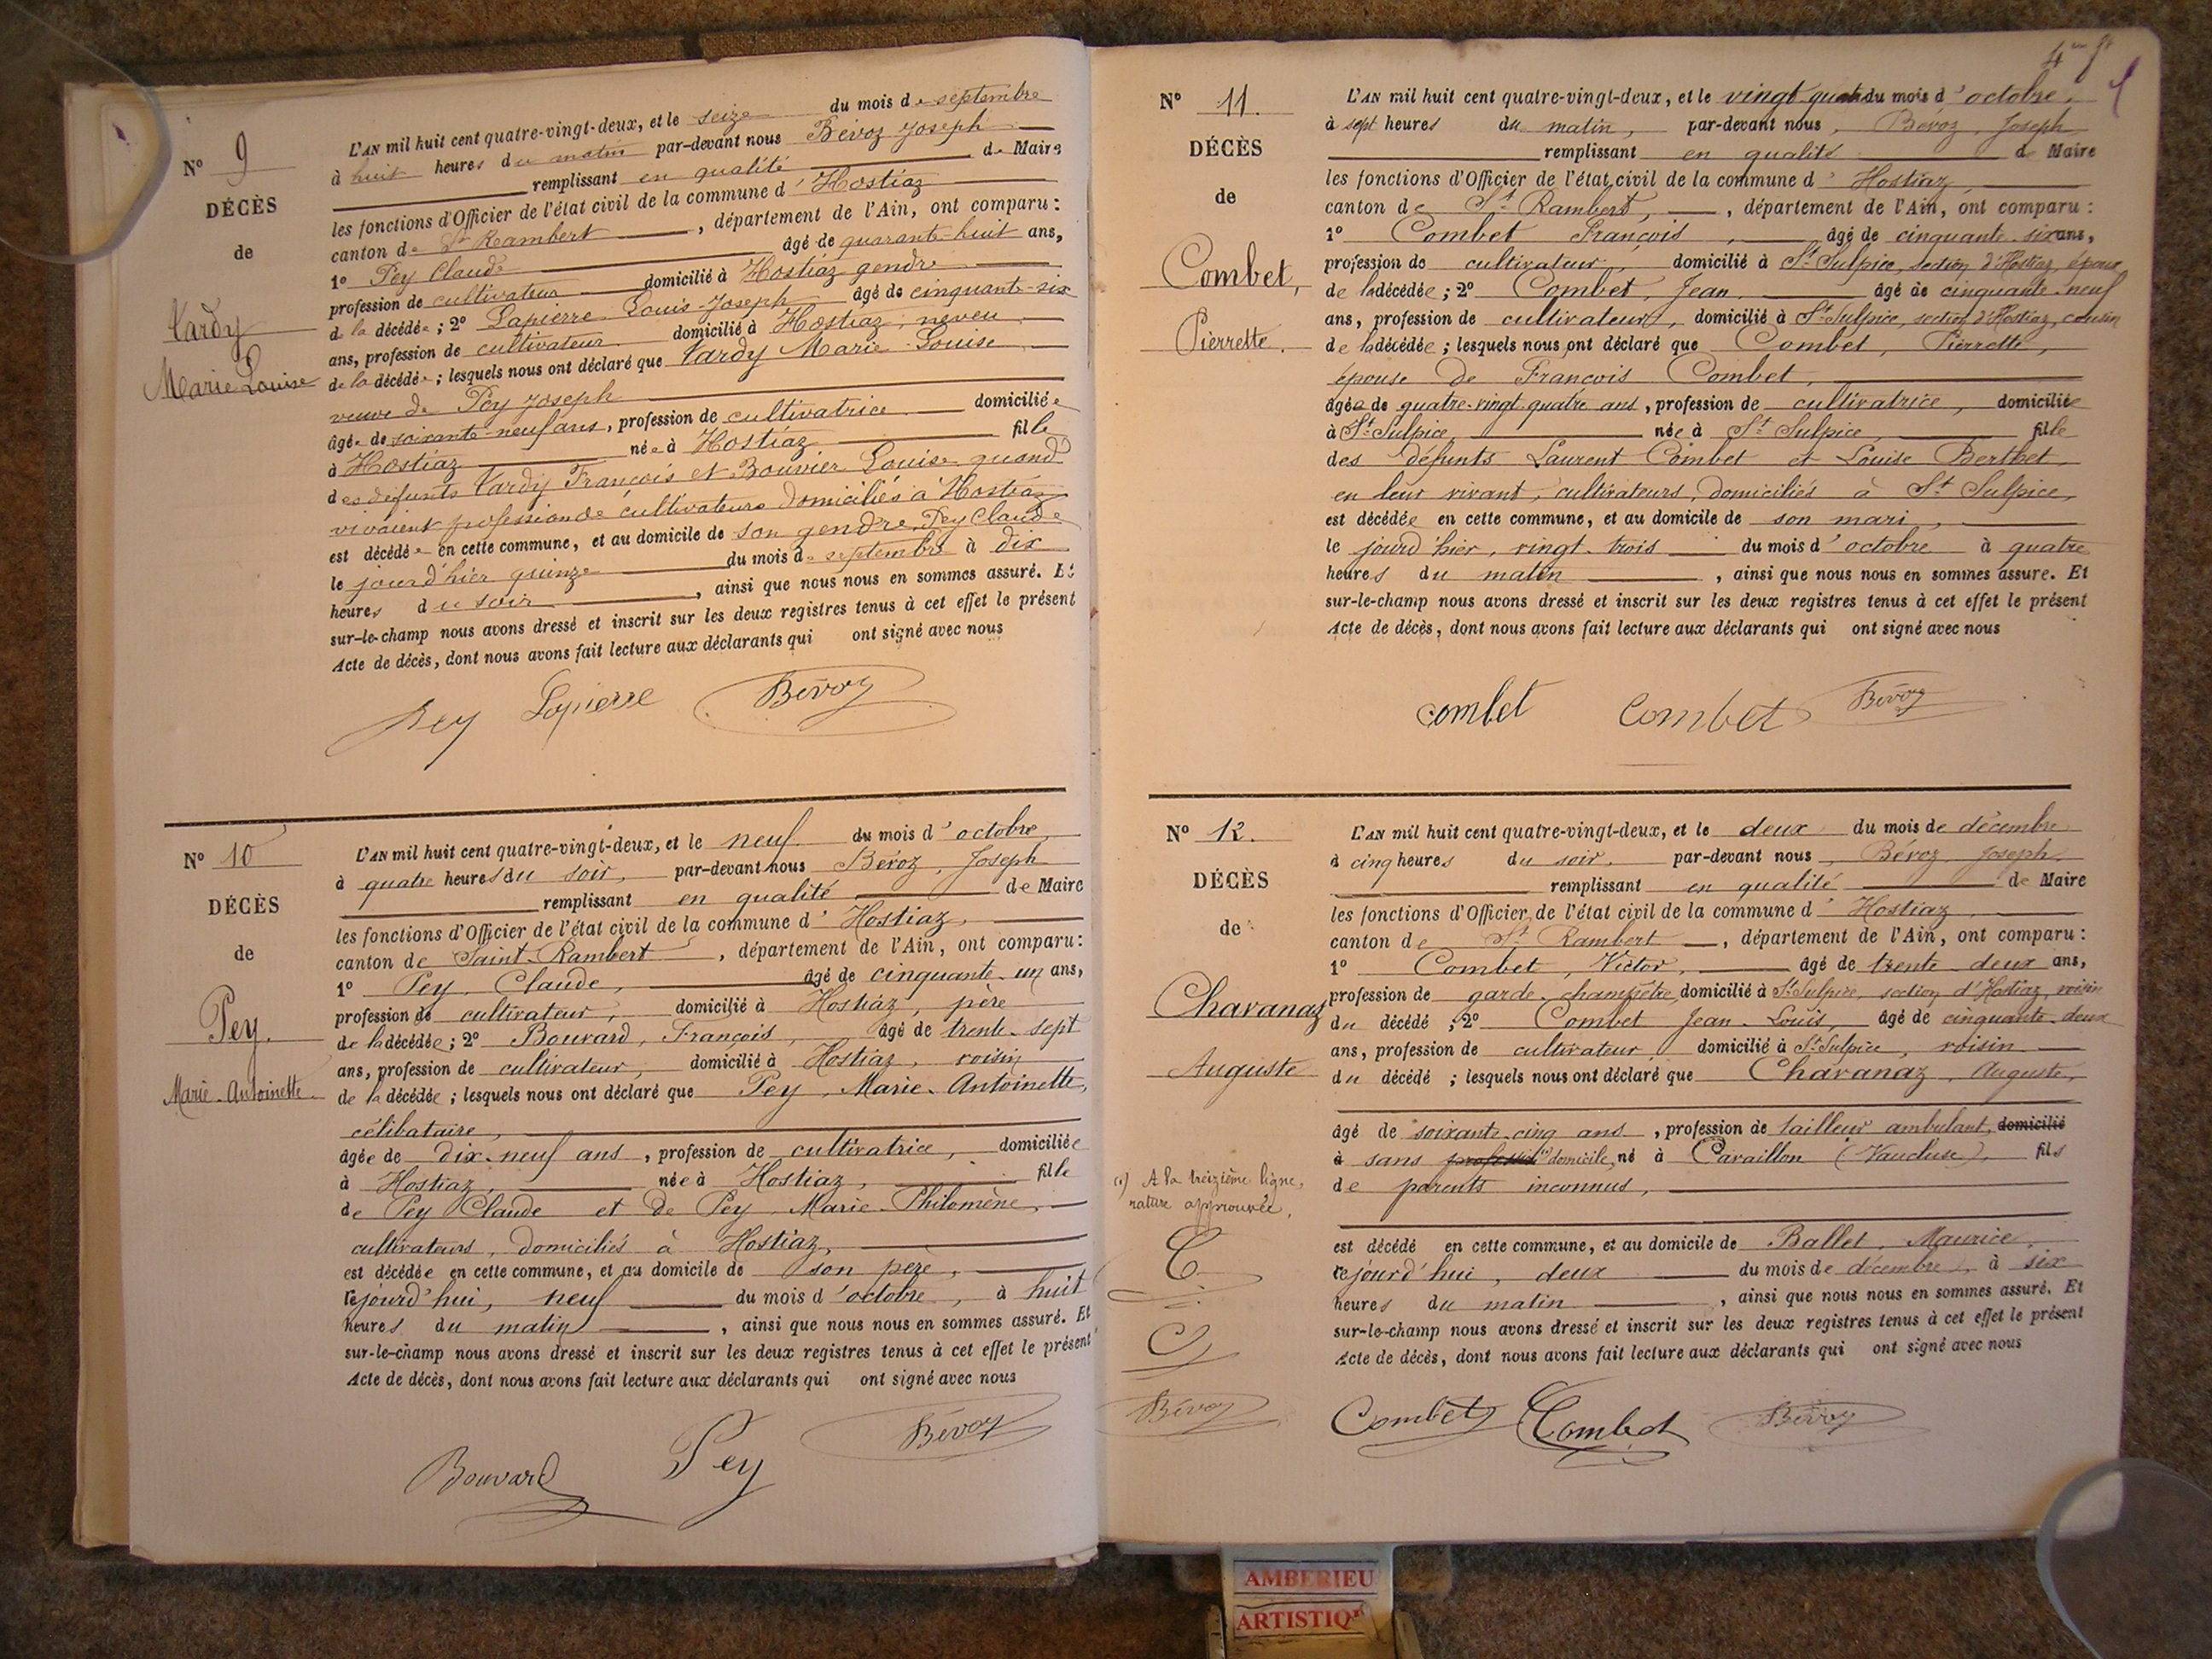 N° 9
DÉCÈS
de
Tardy
Marie Louise
L'AN mil huit cent quatre-vingt-deux, et le seize du mois de septembre
à huit heures du matin par-devant nous Bévoz Joseph
remplissant en qualité de Maire
les fonctions d'Officier de l'état civil de la commune d'Hostiaz
canton de St Rambert, département de l'Ain, ont comparu :
1° Pey Claude âgé de quarante-huit ans,
profession de cultivateur domicilié à Hostiaz gendre
de la décédée ; 2° Lapierre Louis Joseph âgé de cinquante-six
ans, profession de cultivateur domicilié à Hostiaz, neveu
de la décédée ; lesquels nous ont déclaré que Tardy Marie Louise
veuve de Pey Joseph
âgée de soixante-neuf ans, profession de cultivatrice domiciliée
à Hostiaz née à Hostiaz fille
des défunts Tardy François et Bouvier Louise quand
vivaient profession de cultivateurs domiciliés à Hostiaz
est décédée en cette commune, et au domicile de son gendre Pey Claude
le jourd'hier quinze du mois de septembre à dix
heures du soir, ainsi que nous nous en sommes assuré. Et
sur-le-champ nous avons dressé et inscrit sur les deux registres tenus à cet effet le présent
Acte de décès, dont nous avons fait lecture aux déclarants qui ont signé avec nous
Pey Lapierre Bévoz
N° 10
DÉCÈS
de
Pey.
Marie-Antoinette.
L'AN mil huit cent quatre-vingt-deux, et le neuf du mois d'octobre,
à quatre heures du soir, par-devant nous Bévoz, Joseph
remplissant en qualité de Maire
les fonctions d'Officier de l'état civil de la commune d'Hostiaz,
canton de Saint-Rambert, département de l'Ain, ont comparu :
1° Pey, Claude, âgé de cinquante-un ans,
profession de cultivateur, domicilié à Hostiaz, père
de la décédée ; 2° Bouvard, François, âgé de trente-sept
ans, profession de cultivateur, domicilié à Hostiaz, voisin
de la décédée ; lesquels nous ont déclaré que Pey, Marie-Antoinette,
célibataire,
âgée de dix-neuf ans, profession de cultivatrice, domiciliée
à Hostiaz, née à Hostiaz, fille
de Pey Claude et de Pey, Marie-Philomène,
cultivateurs, domiciliés à Hostiaz,
est décédée en cette commune, et au domicile de son père,
le jourd'hui, neuf du mois d'octobre, à huit
heures du matin, ainsi que nous nous en sommes assuré. Et
sur-le-champ nous avons dressé et inscrit sur les deux registres tenus à cet effet le présent
Acte de décès, dont nous avons fait lecture aux déclarants qui ont signé avec nous
Bouvard Pey Bévoz
N° 11.
DÉCÈS
de
Combet,
Pierrette.
L'AN mil huit cent quatre-vingt-deux, et le vingt-quatre du mois d'octobre,
à sept heures du matin, par-devant nous, Bévoz, Joseph
remplissant en qualité de Maire
les fonctions d'Officier de l'état civil de la commune d'Hostiaz,
canton de St Rambert, département de l'Ain, ont comparu :
1° Combet François, âgé de cinquante-six ans,
profession de cultivateur, domicilié à St-Sulpice, section d'Hostiaz, époux
de la décédée ; 2° Combet, Jean, âgé de cinquante-neuf
ans, profession de cultivateur, domicilié à St-Sulpice, section d'Hostiaz, cousin
de la décédée ; lesquels nous ont déclaré que Combet, Pierrette,
épouse de François Combet,
âgée de quatre-vingt-quatre ans, profession de cultivatrice, domiciliée
à St Sulpice, née à St Sulpice, fille
des défunts Laurent Combet et Louise Berthet,
en leur vivant, cultivateurs, domiciliés à St Sulpice,
est décédée en cette commune, et au domicile de son mari,
le jourd'hier, vingt-trois du mois d'octobre à quatre
heures du matin, ainsi que nous nous en sommes assuré. Et
sur-le-champ nous avons dressé et inscrit sur les deux registres tenus à cet effet le présent
Acte de décès, dont nous avons fait lecture aux déclarants qui ont signé avec nous
Combet Combet Bévoz
N° 12.
DÉCÈS
de
Chavanaz
Auguste
L'AN mil huit cent quatre-vingt-deux, et le deux du mois de décembre
à cinq heures du soir, par-devant nous, Bévoz, Joseph,
remplissant en qualité de Maire
les fonctions d'Officier de l'état civil de la commune d'Hostiaz,
canton de St Rambert, département de l'Ain, ont comparu :
1° Combet, Victor, âgé de trente-deux ans,
profession de garde-champêtre, domicilié à St-Sulpice, section d'Hostiaz, voisin
du décédé ; 2° Combet Jean-Louis, âgé de cinquante-deux
ans, profession de cultivateur, domicilié à St-Sulpice, voisin
du décédé ; lesquels nous ont déclaré que Chavanaz, Auguste,
âgé de soixante-cinq ans, profession de tailleur ambulant, domicilié
à sans profession (1) domicile, né à Cavaillon (Vaucluse), fils
de parents inconnus,
est décédé en cette commune, et au domicile de Ballet, Maurice,
le jourd'hui, deux du mois de décembre, à six
heures du matin, ainsi que nous nous en sommes assuré. Et
sur-le-champ nous avons dressé et inscrit sur les deux registres tenus à cet effet le présent
Acte de décès, dont nous avons fait lecture aux déclarants qui ont signé avec nous
(1) A la treizième ligne,
nature approuvée.
C
C
Bévoz
Combet Combet Bévoz
AMBERIEU
ARTISTIQ